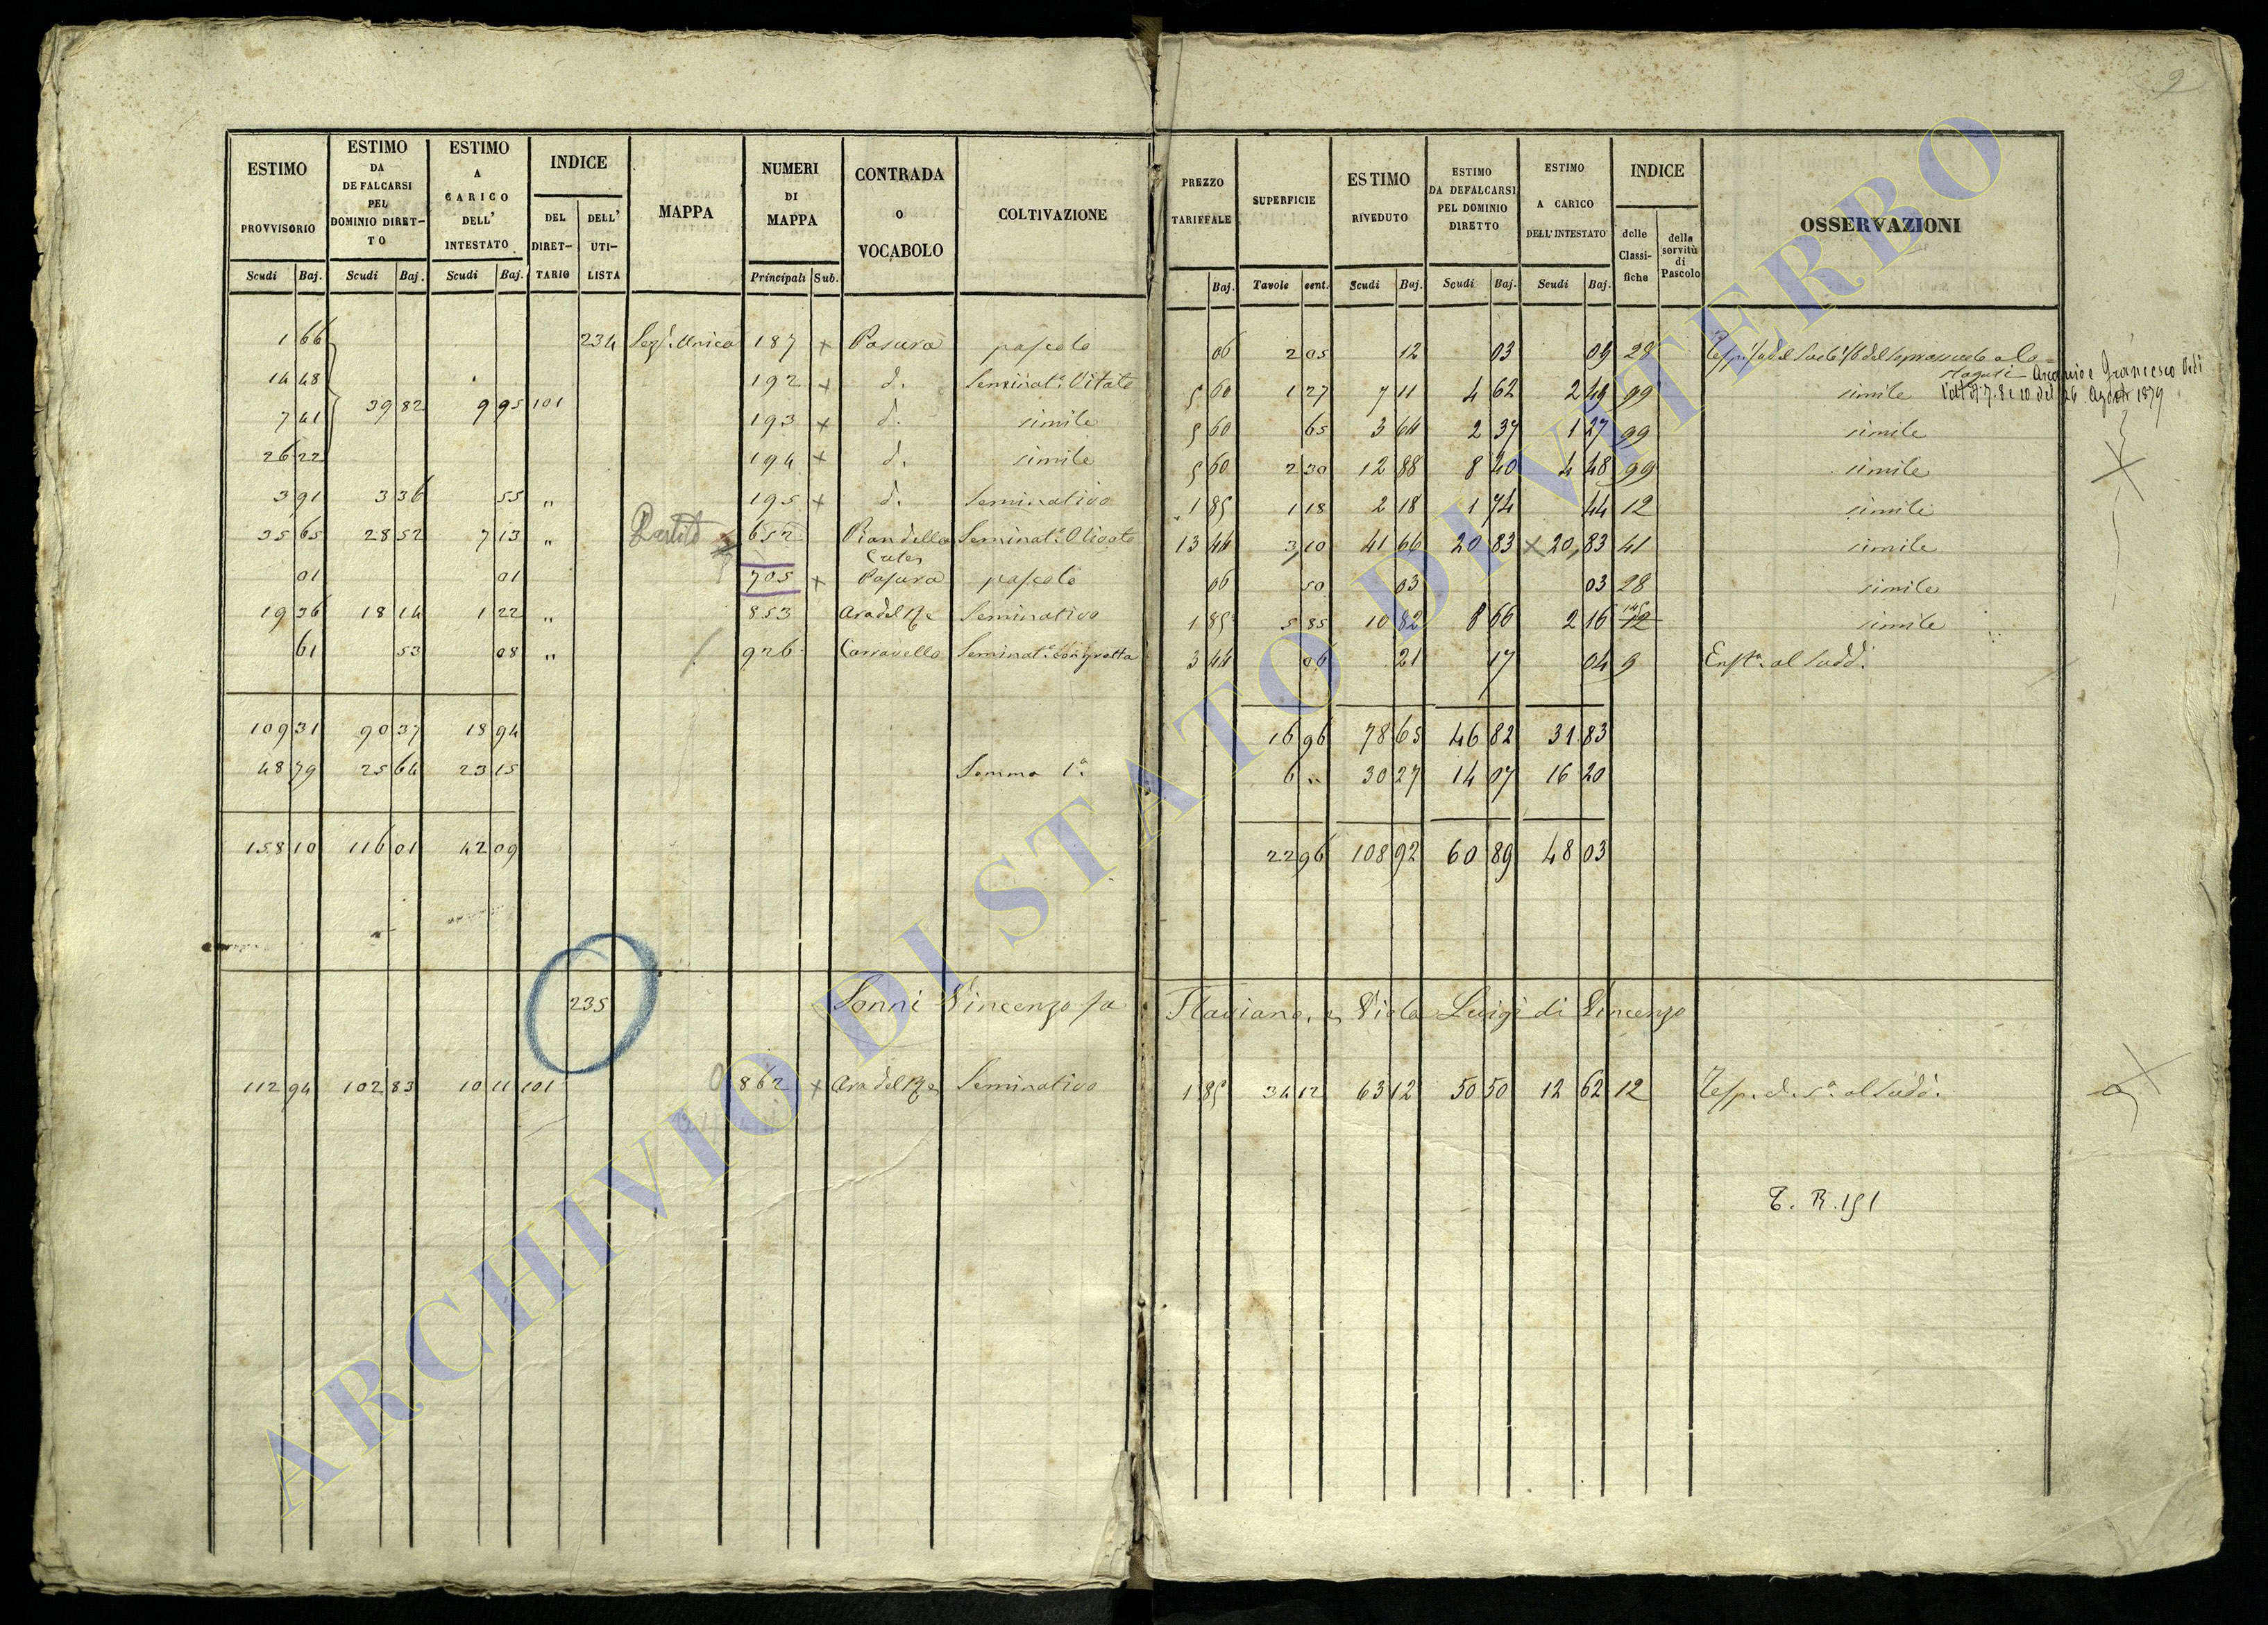 9
ESTIMO PROVVISORIO Scudi Baj.
ESTIMO DA DEFALCARSI PEL DOMINIO DIRETTO Scudi Baj.
ESTIMO A CARICO DELL' INTESTATO Scudi Baj.
INDICE DEL DIRETTARIO DELL' UTILISTA
MAPPA
NUMERI DI MAPPA Principali Sub.
CONTRADA O VOCABOLO
COLTIVAZIONE
PREZZO TARIFFALE Baj.
SUPERFICIE Tavole cent.
ESTIMO RIVEDUTO Scudi Baj.
ESTIMO DA DEFALCARSI PEL DOMINIO DIRETTO Scudi Baj.
ESTIMO A CARICO DELL'INTESTATO Scudi Baj.
INDICE delle Classifiche della servitù di Pascolo
OSSERVAZIONI
1 66 234 Sez. Unica 187 x pascolo 06 2 05 12 03 09 28
Francesco
14 48 192 x d. Seminat. Vitato 5 60 1 27 7 11 4 62 2 49 99 simile 7. 8 e 10 del 26 Agosto 1879
7 41 39 82 9 95 101 193 x d. simile 5 60 65 3 64 2 37 1 27 99 simile
26 22 194 x d. simile 5 60 2 30 12 88 8 40 4 48 99 simile
3 91 3 36 55 " 195 x d. Seminativo 1 85 1 18 2 18 1 74 44 12 simile
35 65 28 52 7 13 " Partito 652 Pian della Seminat. Olivato 13 44 3 10 41 66 20 83 x 20,83 41 simile
01 01 705 x pascolo 06 50 03 03 28 simile
19 36 18 14 1 22 " 853 Ara del Re Seminativo 1 85 5 85 10 82 8 66 2 16 12 simile
61 53 08 " 926 Carravello Seminat. con grotta 3 44 06 21 17 04 9 al sudd.
109 31 90 37 18 94 16 96 78 65 46 82 31 83
48 79 25 64 23 15 Somma 1a. 6 " 30 27 14 07 16 20
158 10 116 01 42 09 22 96 108 92 60 89 48 03
235 Sonni Vincenzo fu Flaviano, e Viola Luigi di Vincenzo
112 94 102 83 10 11 101 862 x Ara del Re Seminativo 1 85 34 12 63 12 50 50 12 62 12 al sudd.
T. R. 151
ARCHIVIO DI STATO DI VITERBO